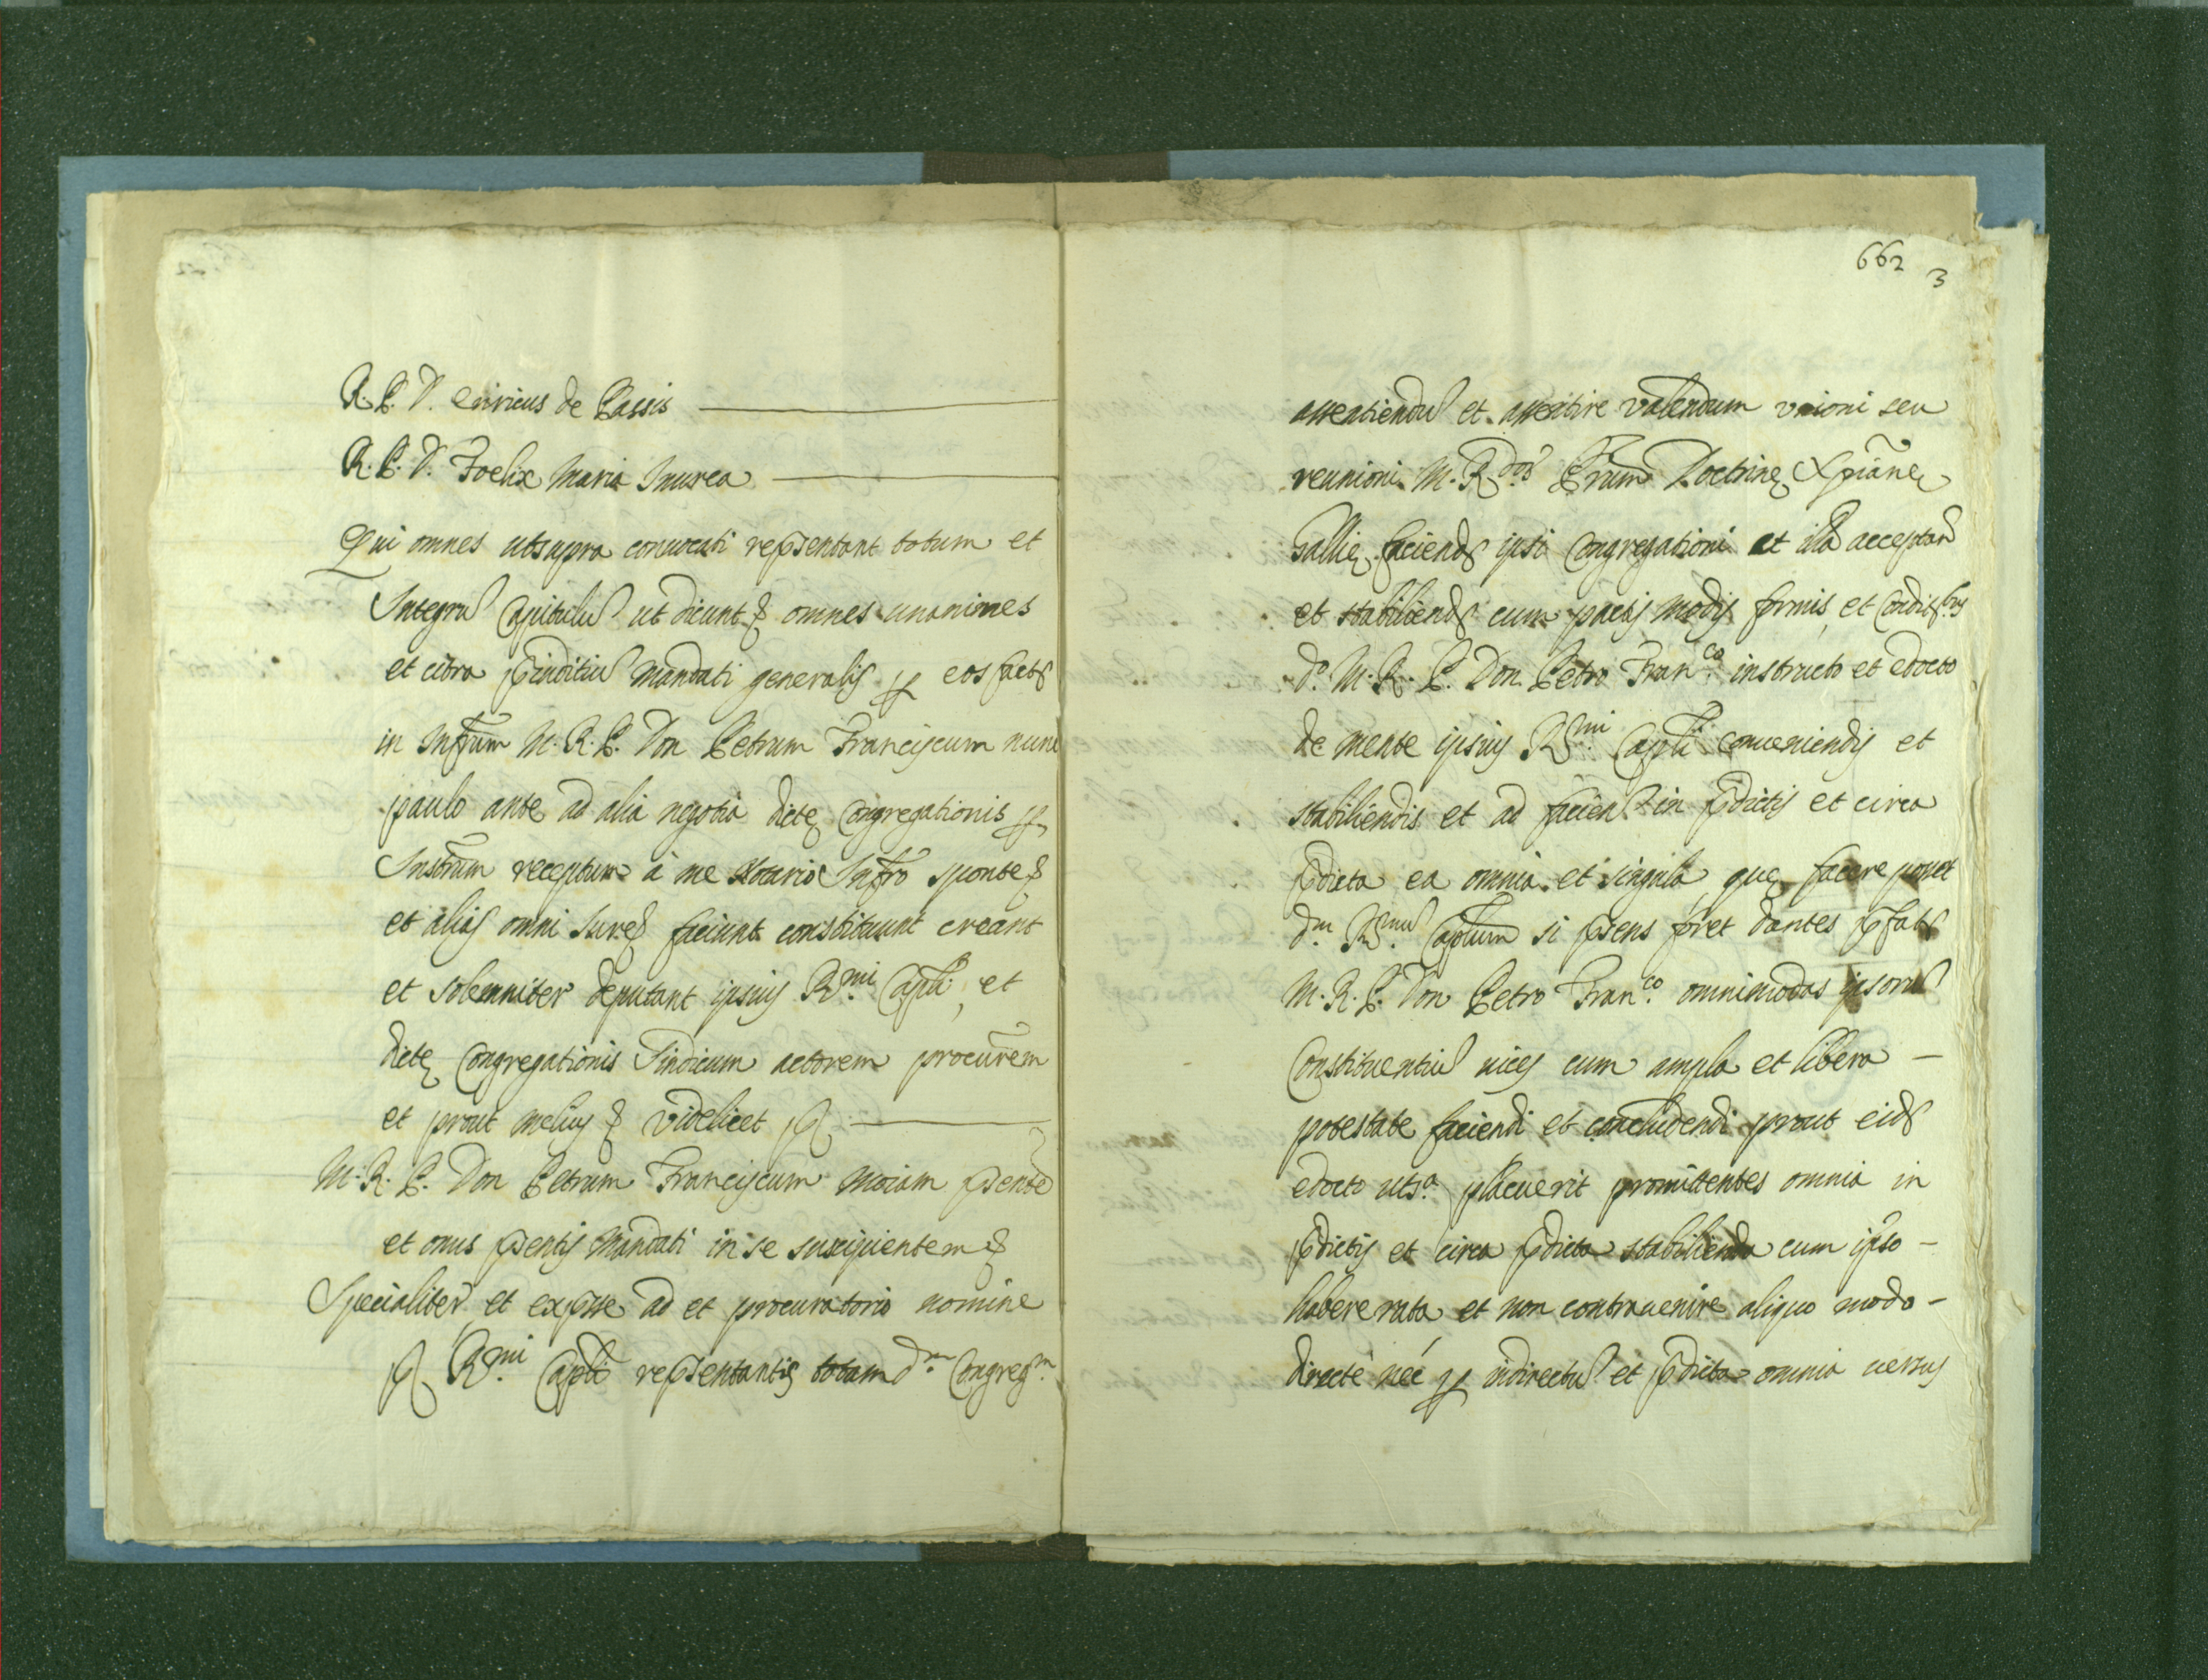 R. P. D. Enricus de Passis
R. P. D. Foelix Maria Inurea
Qui omnes utsupra conuocati repsentant totum et
Integrũ Capitulũ ut dicunt & omnes unanimes
et citra pinditiũ Mandati generalis p eos fact
in Infrum M. R. P. Don Petrum Franciscum nunc
paulo ante ad alia negotia dictę Congregationis p
Instrum receptum à me Notario Infro sponte &
et alias omni Iure & faciunt constituunt creant
et solemniter deputant ipsius R.mi Capli, et
dictę Congregationis Sindicum actorem procurem
et prout melius & videlicet p
M. R. P. Don Petrum Franciscum Moiam psente
et onus psentis Mandati in se suscipientem &
Specialiter et expsse ad et procuratorio nomine
p R.mi Capli repsentantis totam d.m Congreg.m
662 3
assentiendũ et assentire valendum unioni seu
reunioni M. R.dor Prum Doctrinę Xpianę
Gallię faciend ipsi Congregationi et illã acceptand
et stabiliend cum pactis modis formis, et Condit.bus
d.o M. R. P. Don Petro Fran.co instructo et edocto
de mente ipsius R.mi Capli conueniendis et
stabiliendis et ad facien in pdictis et circa
pdicta ea omnia et singula quę facere posset
d.m R.mũ Caplum si psens foret dantes pfat
M. R. P. Don Petro Fran.co omnimodas ipsorũ
Constituentiũ uices cum ampla et libera -
potestate faciendi et concludendi prout eid
edocto uts.a placuerit promittentes omnia in
pdictis et circa pdicta stabilienda cum ipso -
habere rata et non contrauenire aliquo modo -
directè nèc p indirectũ et pdicta omnia uersus